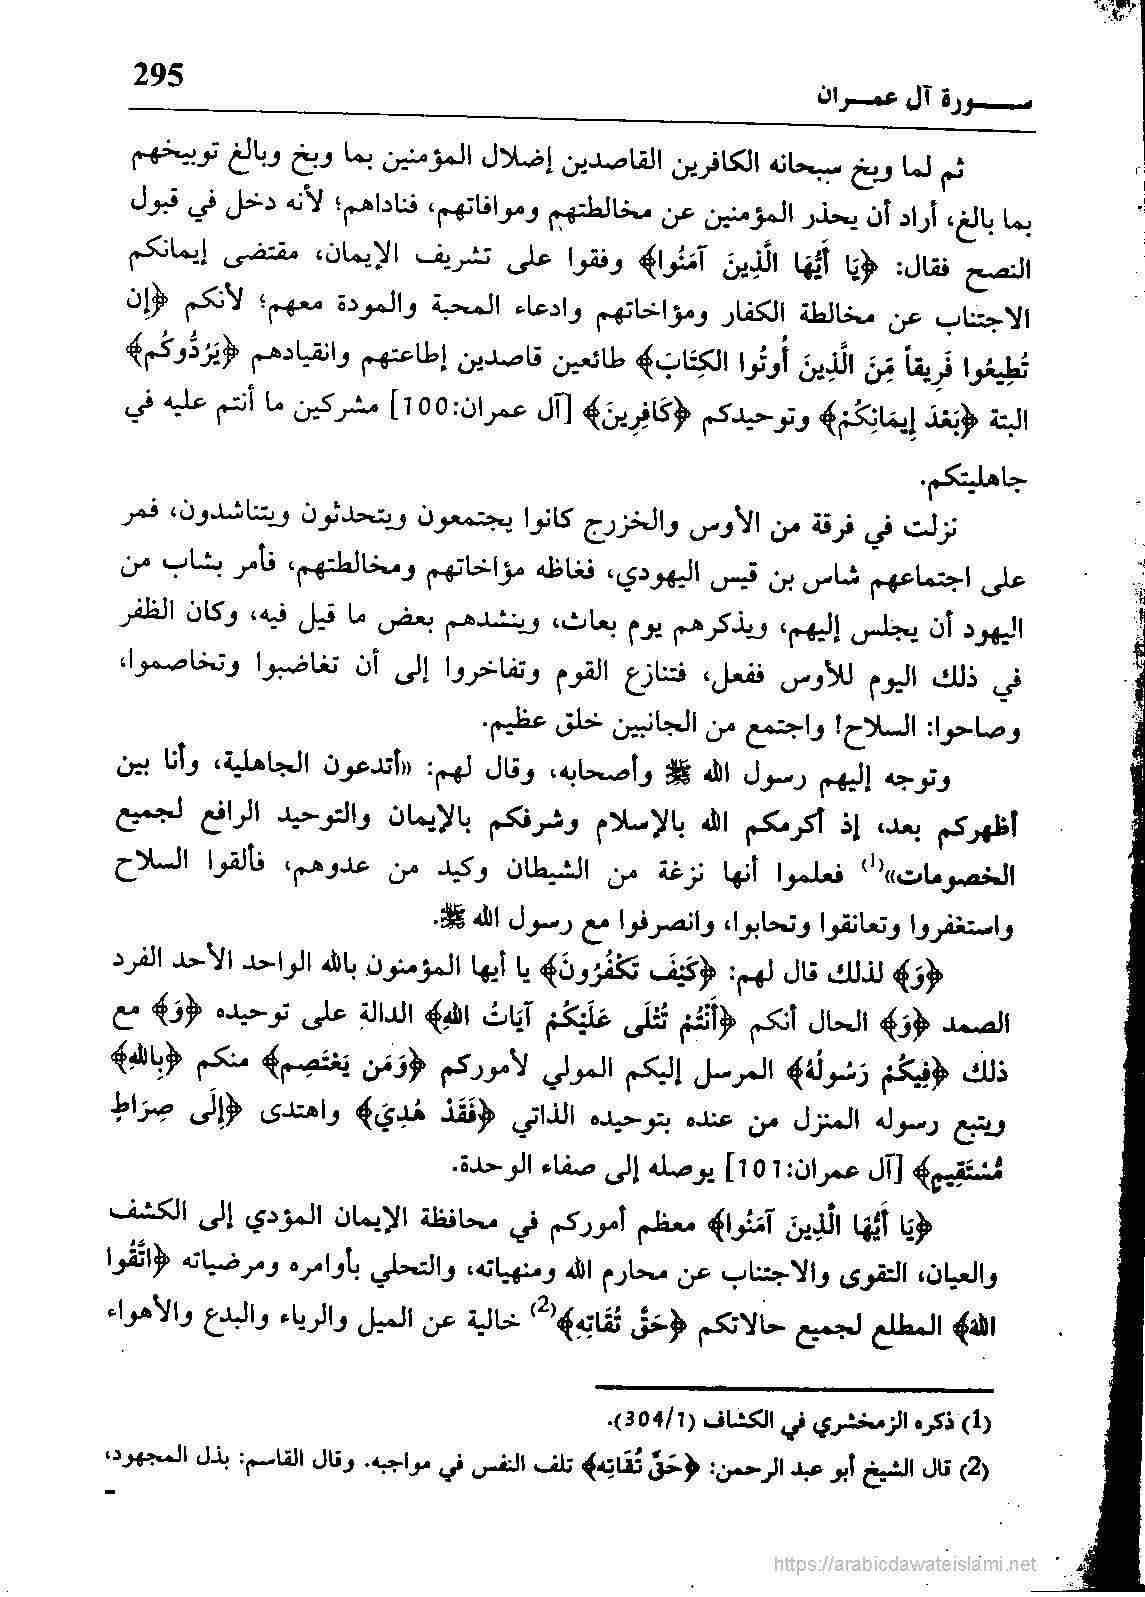 295
سـورة آل عمـران
ثم لما وبخ سبحانه الكافرين القاصدين إضلال المؤمنين بما وبخ وبالغ توبيخهم
بما بالغ، أراد أن يحذر المؤمنين عن مخالطتهم وموافاتهم، فناداهم؛ لأنه دخل في قبول
النصح فقال: ﴿يَا أَيُّهَا الَّذِينَ آمَنُوا﴾ وفقوا على تشريف الإيمان، مقتضى إيمانكم
الاجتناب عن مخالطة الكفار ومؤاخاتهم وادعاء المحبة والمودة معهم؛ لأنكم ﴿إن
تُطِيعُوا فَرِيقاً مِّنَ الَّذِينَ أُوتُوا الكِتَابَ﴾ طائعين قاصدين إطاعتهم وانقيادهم ﴿يَرُدُّوكُم﴾
البتة ﴿بَعْدَ إِيمَانِكُمْ﴾ وتوحيدكم ﴿كَافِرِينَ﴾ [آل عمران:100] مشركين ما أنتم عليه في
جاهليتكم.
نزلت في فرقة من الأوس والخزرج كانوا يجتمعون ويتحدثون ويتناشدون، فمر
على اجتماعهم شاس بن قيس اليهودي، فغاظه مؤاخاتهم ومخالطتهم، فأمر بشاب من
اليهود أن يجلس إليهم، ويذكرهم يوم بعاث، وينشدهم بعض ما قيل فيه، وكان الظفر
في ذلك اليوم للأوس ففعل، فتنازع القوم وتفاخروا إلى أن تغاضبوا وتخاصموا،
وصاحوا: السلاح! واجتمع من الجانبين خلق عظيم.
وتوجه إليهم رسول الله ﷺ وأصحابه، وقال لهم: «أتدعون الجاهلية، وأنا بين
أظهركم بعد، إذ أكرمكم الله بالإسلام وشرفكم بالإيمان والتوحيد الرافع لجميع
الخصومات»(1) فعلموا أنها نزغة من الشيطان وكيد من عدوهم، فألقوا السلاح
واستغفروا وتعانقوا وتحابوا، وانصرفوا مع رسول الله ﷺ.
﴿وَ﴾ لذلك قال لهم: ﴿كَيْفَ تَكْفُرُونَ﴾ يا أيها المؤمنون بالله الواحد الأحد الفرد
الصمد ﴿وَ﴾ الحال أنكم ﴿أَنْتُمْ تُتْلَى عَلَيْكُمْ آيَاتُ اللهِ﴾ الدالة على توحيده ﴿وَ﴾ مع
ذلك ﴿فِيكُمْ رَسُولُهُ﴾ المرسل إليكم المولي لأموركم ﴿وَمَن يَعْتَصِم﴾ منكم ﴿بِاللهِ﴾
ويتبع رسوله المنزل من عنده بتوحيده الذاتي ﴿فَقَدْ هُدِيَ﴾ واهتدى ﴿إِلَى صِرَاطٍ
مُّسْتَقِيمٍ﴾ [آل عمران:101] يوصله إلى صفاء الوحدة.
﴿يَا أَيُّهَا الَّذِينَ آمَنُوا﴾ معظم أموركم في محافظة الإيمان المؤدي إلى الكشف
والعيان، التقوى والاجتناب عن محارم الله ومنهياته، والتحلي بأوامره ومرضياته ﴿اتَّقُوا
اللهَ﴾ المطلع لجميع حالاتكم ﴿حَقَّ تُقَاتِهِ﴾(2) خالية عن الميل والرياء والبدع والأهواء
(1) ذكره الزمخشري في الكشاف (304/1).
(2) قال الشيخ أبو عبد الرحمن: ﴿حَقَّ تُقَاتِه﴾ تلف النفس في مواجبه. وقال القاسم: بذل المجهود،
https://arabicdawateislami.net